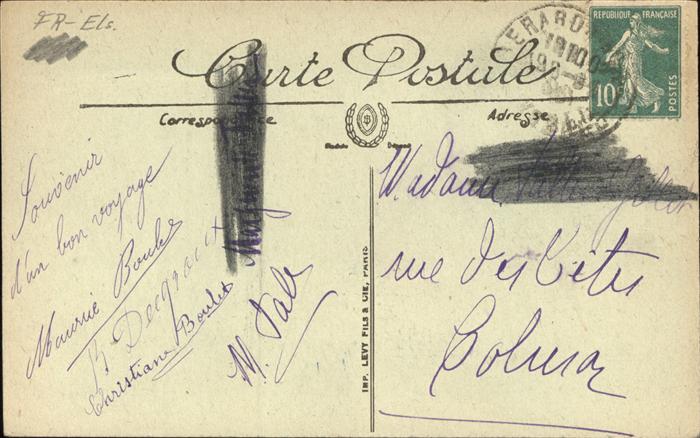 FR-Els.
Carte Postale
Correspondance
Adresse
Modèle Déposé
RÉPUBLIQUE FRANÇAISE
10c
POSTES
GÉRARD
Souvenir
d'un bon voyage
Maurice Boulet
Christiane Boulet
Madame
rue des Clés
Colmar
IMP. LEVY FILS & CIE, PARIS